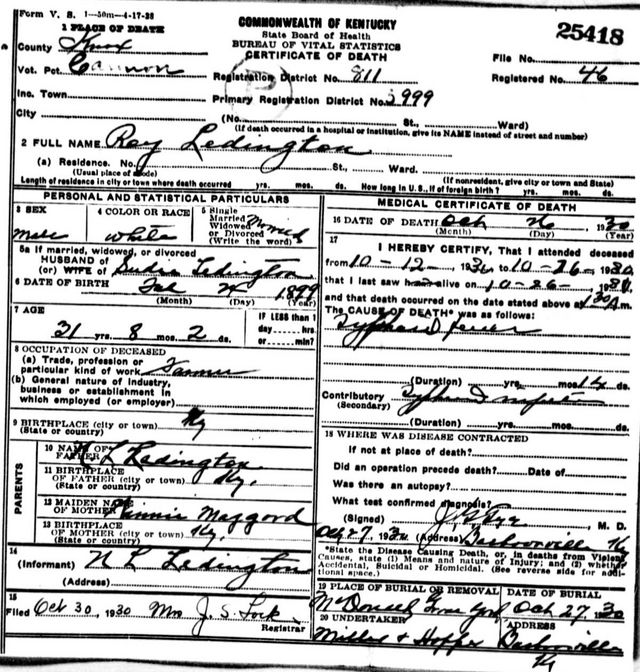 Form V. S. 1—50m—4-17-28
COMMONWEALTH OF KENTUCKY
State Board of Health
BUREAU OF VITAL STATISTICS
CERTIFICATE OF DEATH
25418
1 PLACE OF DEATH
County Knox
File No.
Vot. Pct. Cannon
Registration District No. 811
Registered No. 46
Inc. Town
Primary Registration District No. 5999
City (No. St., Ward)
(If death occurred in a hospital or institution, give its NAME instead of street and number)
2 FULL NAME Roy Ledington
(a) Residence. No. St., Ward.
(Usual place of abode) (If nonresident, give city or town and State)
Length of residence in city or town where death occurred yrs. mos. ds. How long in U. S., if of foreign birth? yrs. mos. ds.
PERSONAL AND STATISTICAL PARTICULARS
3 SEX
male
4 COLOR OR RACE
white
5 Single
Married
Widowed
or Divorced
(Write the word)
Married
5a If married, widowed, or divorced
HUSBAND of
(or) WIFE of Ledington
6 DATE OF BIRTH Feb 1899
(Month) (Day) (Year)
7 AGE
31 yrs. 8 mos. 2 ds.
IF LESS than 1
day hrs.
or min?
8 OCCUPATION OF DECEASED
(a) Trade, profession or
particular kind of work Farmer
(b) General nature of industry,
business or establishment in
which employed (or employer)
9 BIRTHPLACE (city or town) Ky
(State or country)
PARENTS
10 NAME OF
FATHER L Ledington
11 BIRTHPLACE
OF FATHER (city or town) Ky.
(State or country)
12 MAIDEN NAME
OF MOTHER Maggord
13 BIRTHPLACE
OF MOTHER (city or town) Ky.
(State or country)
14
(Informant) N L Ledington
(Address)
15
Filed Oct 30, 1930 Mrs J. S. Lock
Registrar
MEDICAL CERTIFICATE OF DEATH
16 DATE OF DEATH Oct 26, 1930
(Month) (Day) (Year)
17
I HEREBY CERTIFY, That I attended deceased
from 10-12-, 1930, to 10-26-, 1930
that I last saw h alive on 10-26-, 1930,
and that death occurred on the date stated above at 1:30 A m.
The CAUSE OF DEATH* was as follows:
Typhoid fever
(Duration) yrs. mos. 14 ds.
Contributory Typhoid
(Secondary)
(Duration) yrs. mos. ds.
18 WHERE WAS DISEASE CONTRACTED
If not at place of death?
Did an operation precede death? Date of
Was there an autopsy?
What test confirmed diagnosis?
(Signed) M. D.
Oct 27, 1930 (Address) Barbourville Ky
*State the Disease Causing Death, or, in deaths from Violent
Causes, state (1) Means and nature of Injury; and (2) whether
Accidental, Suicidal or Homicidal. (See reverse side for addi-
tional space.)
19 PLACE OF BURIAL OR REMOVAL
DATE OF BURIAL
Oct 27, 1930
20 UNDERTAKER
ADDRESS
Barbourville
Ky